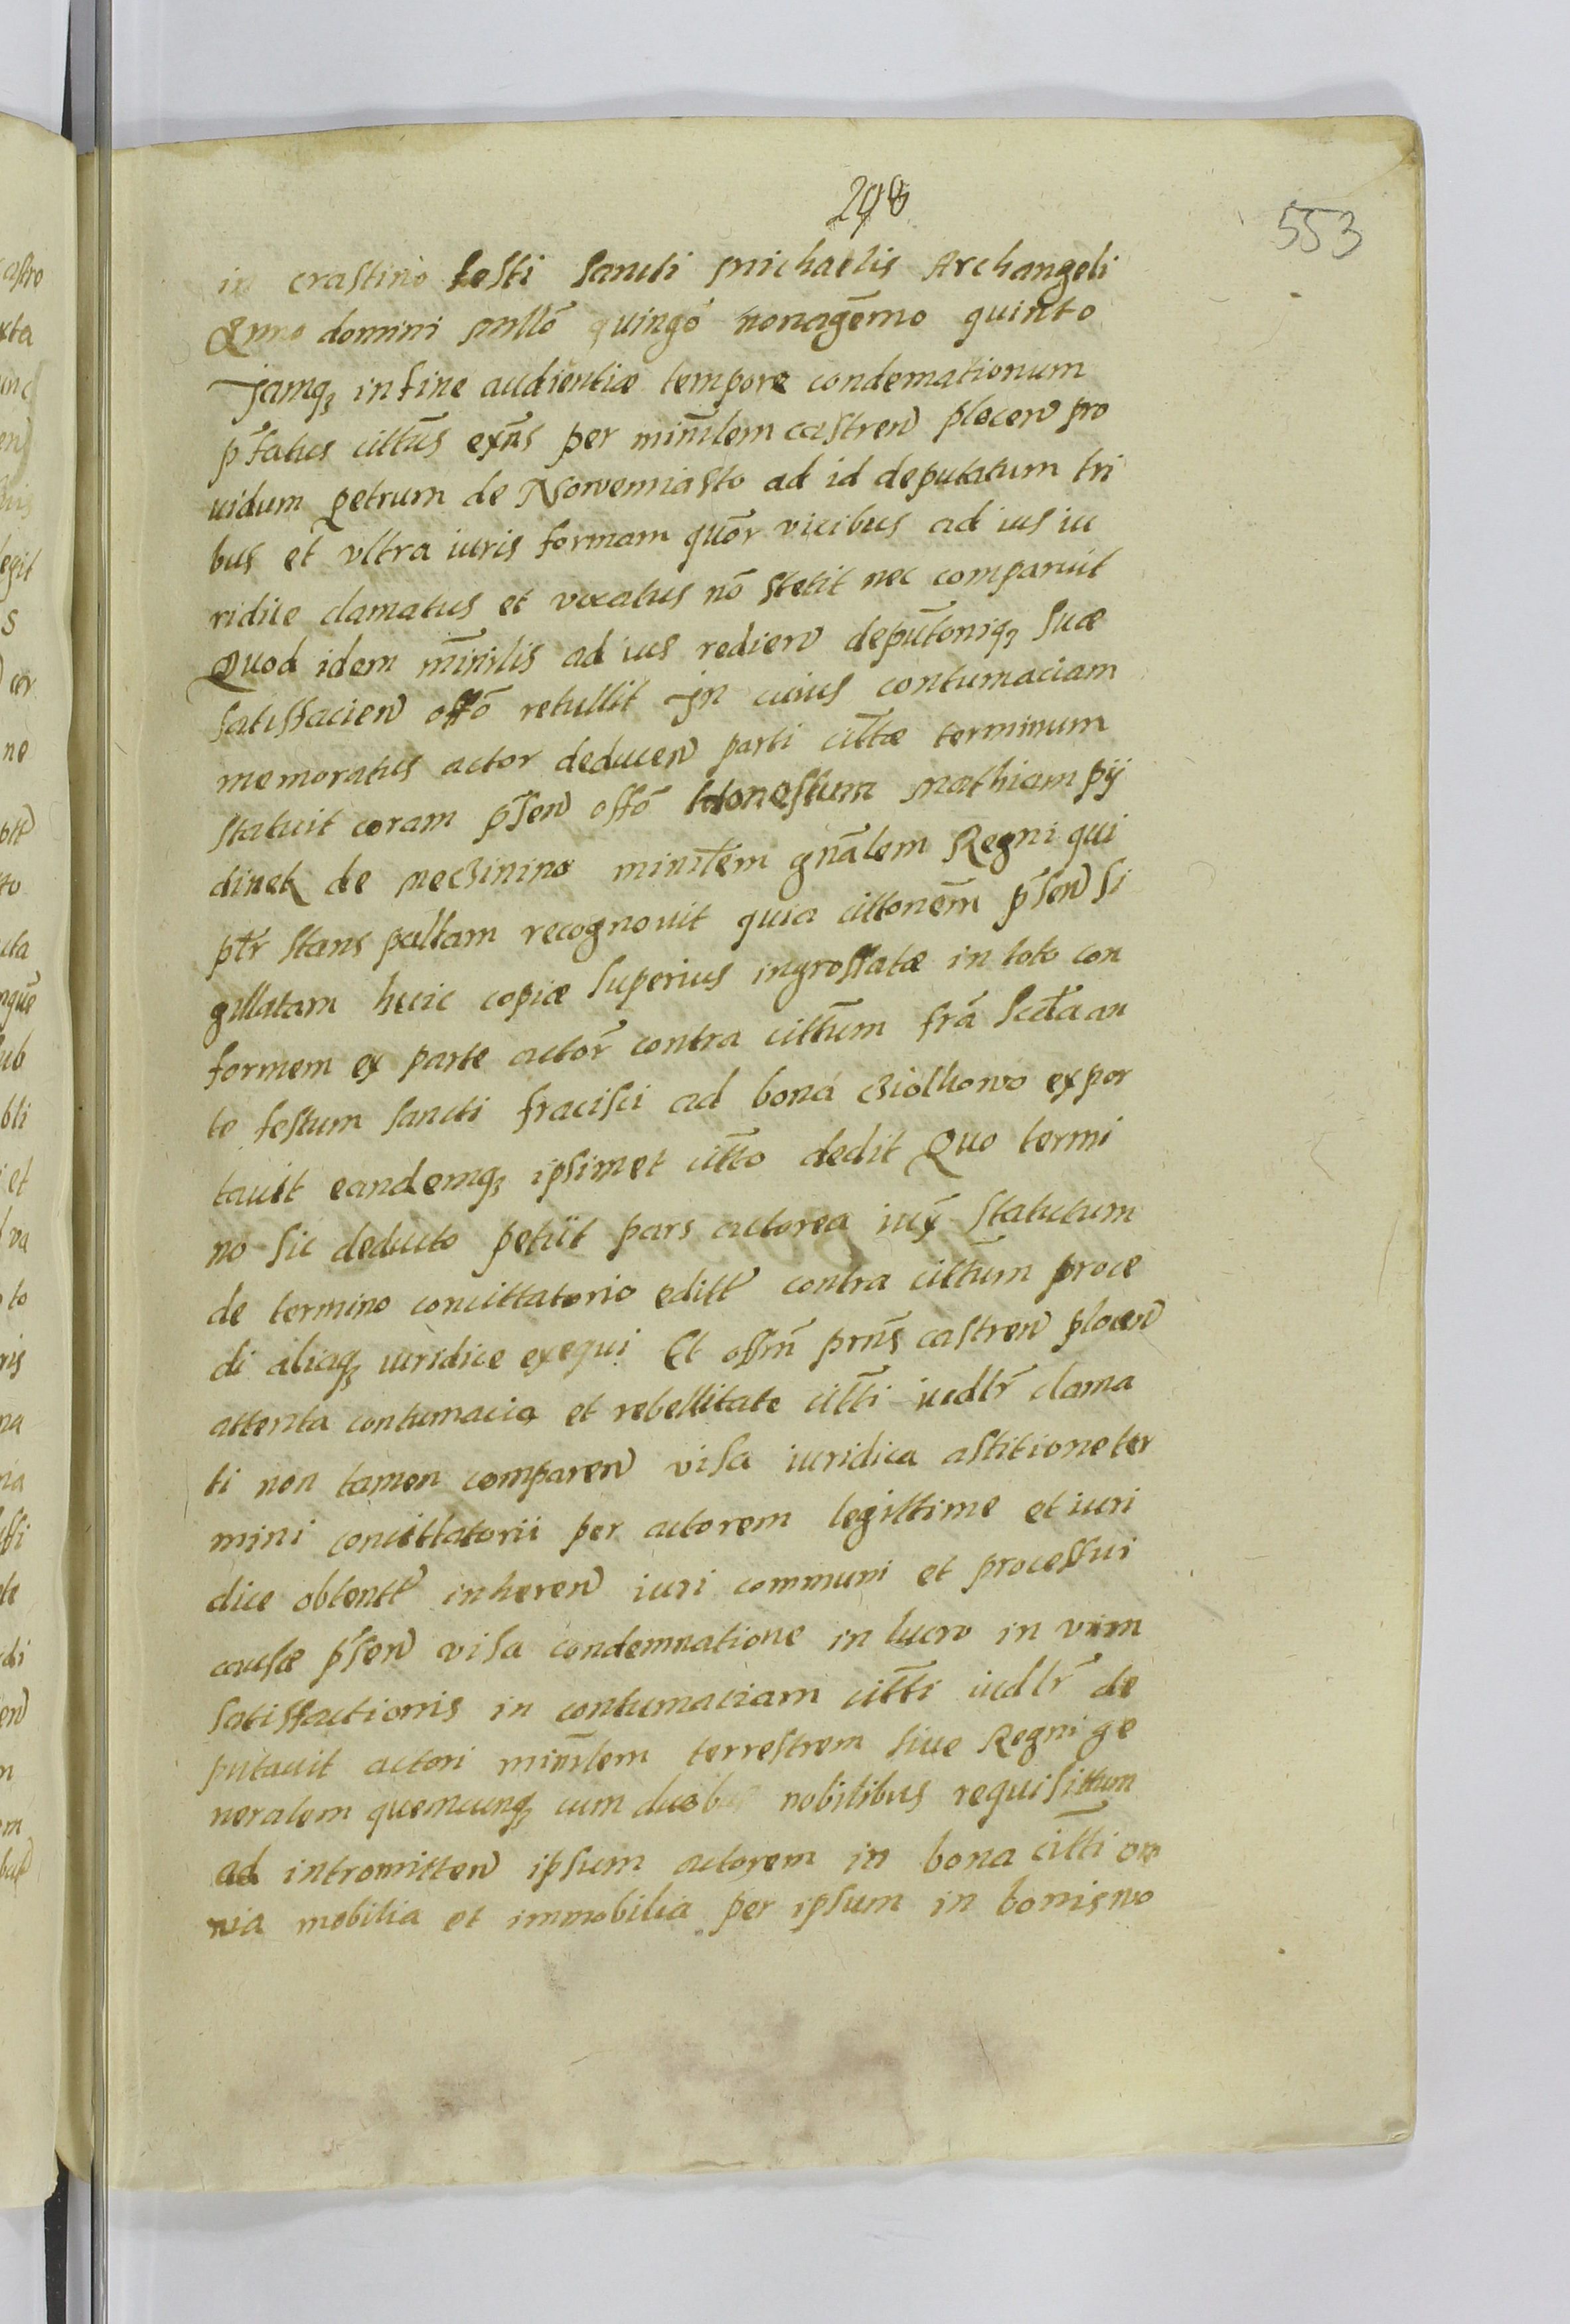 298
553
in crastino festi Sancti Michaelis Archangeli
Anno domini millō quingō nonagēmo quinto
Jamq; in fine audientiæ tempore condemnationum
p̄fatus cittūs exn̄s per minrlem castren plocen pro
uidum Petrum de Nowemiasto ad id deputatum tri
bus et vltra iuris formam quōr vicibus ad ius iu
ridice clamatus et vocatus nō stetit nec comparuit
Quod idem minrlis ad ius redien deputōniq; suæ
satisfacien offō retullit In cuius contumaciam
memoratus actor deducen parti cittæ terminum
statuit coram p̄sen offō honestum Mathiam pij
dinek de Meczinino minrlem gnālem Regni qui
ptr̄ stans pallam recognouit quia cittonēm p̄sen si
gillatam huic copiæ superius ingrossatæ in toto con
formem ex parte actor̄ contra cittūm frā Scdā an
te festum Sancti fracisci ad bona Cziolkowo expor
tauit eandemq; ipsimet citto dedit Quo termi
no sic deducto petiit pars actorea iux̄ Statutum
de termino concittatorio editt contra cittum proce
di aliaq; iuridice exequi Et offm̄ prns̄ castren plocen
attenta contumacia et rebellitate citti iudlr̄ clama
ti non tamen comparen visa iuridica astitione ter
mini concittatorii per actorem legittime et iuri
dice obtentt inheren iuri communi et processui
causæ p̄sen visa condemnatione in lucro in vim
satisfactionis in contumaciam citti iudlr̄ de
putauit actori minrlem terrestrem siue Regni ge
neralem quemcunq; cum duobus nobilibus requisittum
ad intromitten ipsum actorem in bona citti om
nia mobilia et immobilia per ipsum in bonis wo